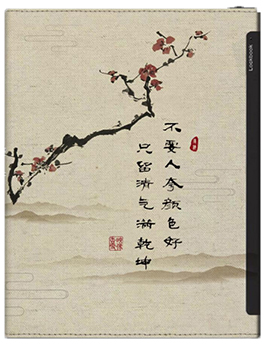 不要人夸颜色好
只留清气满乾坤
Lookbook